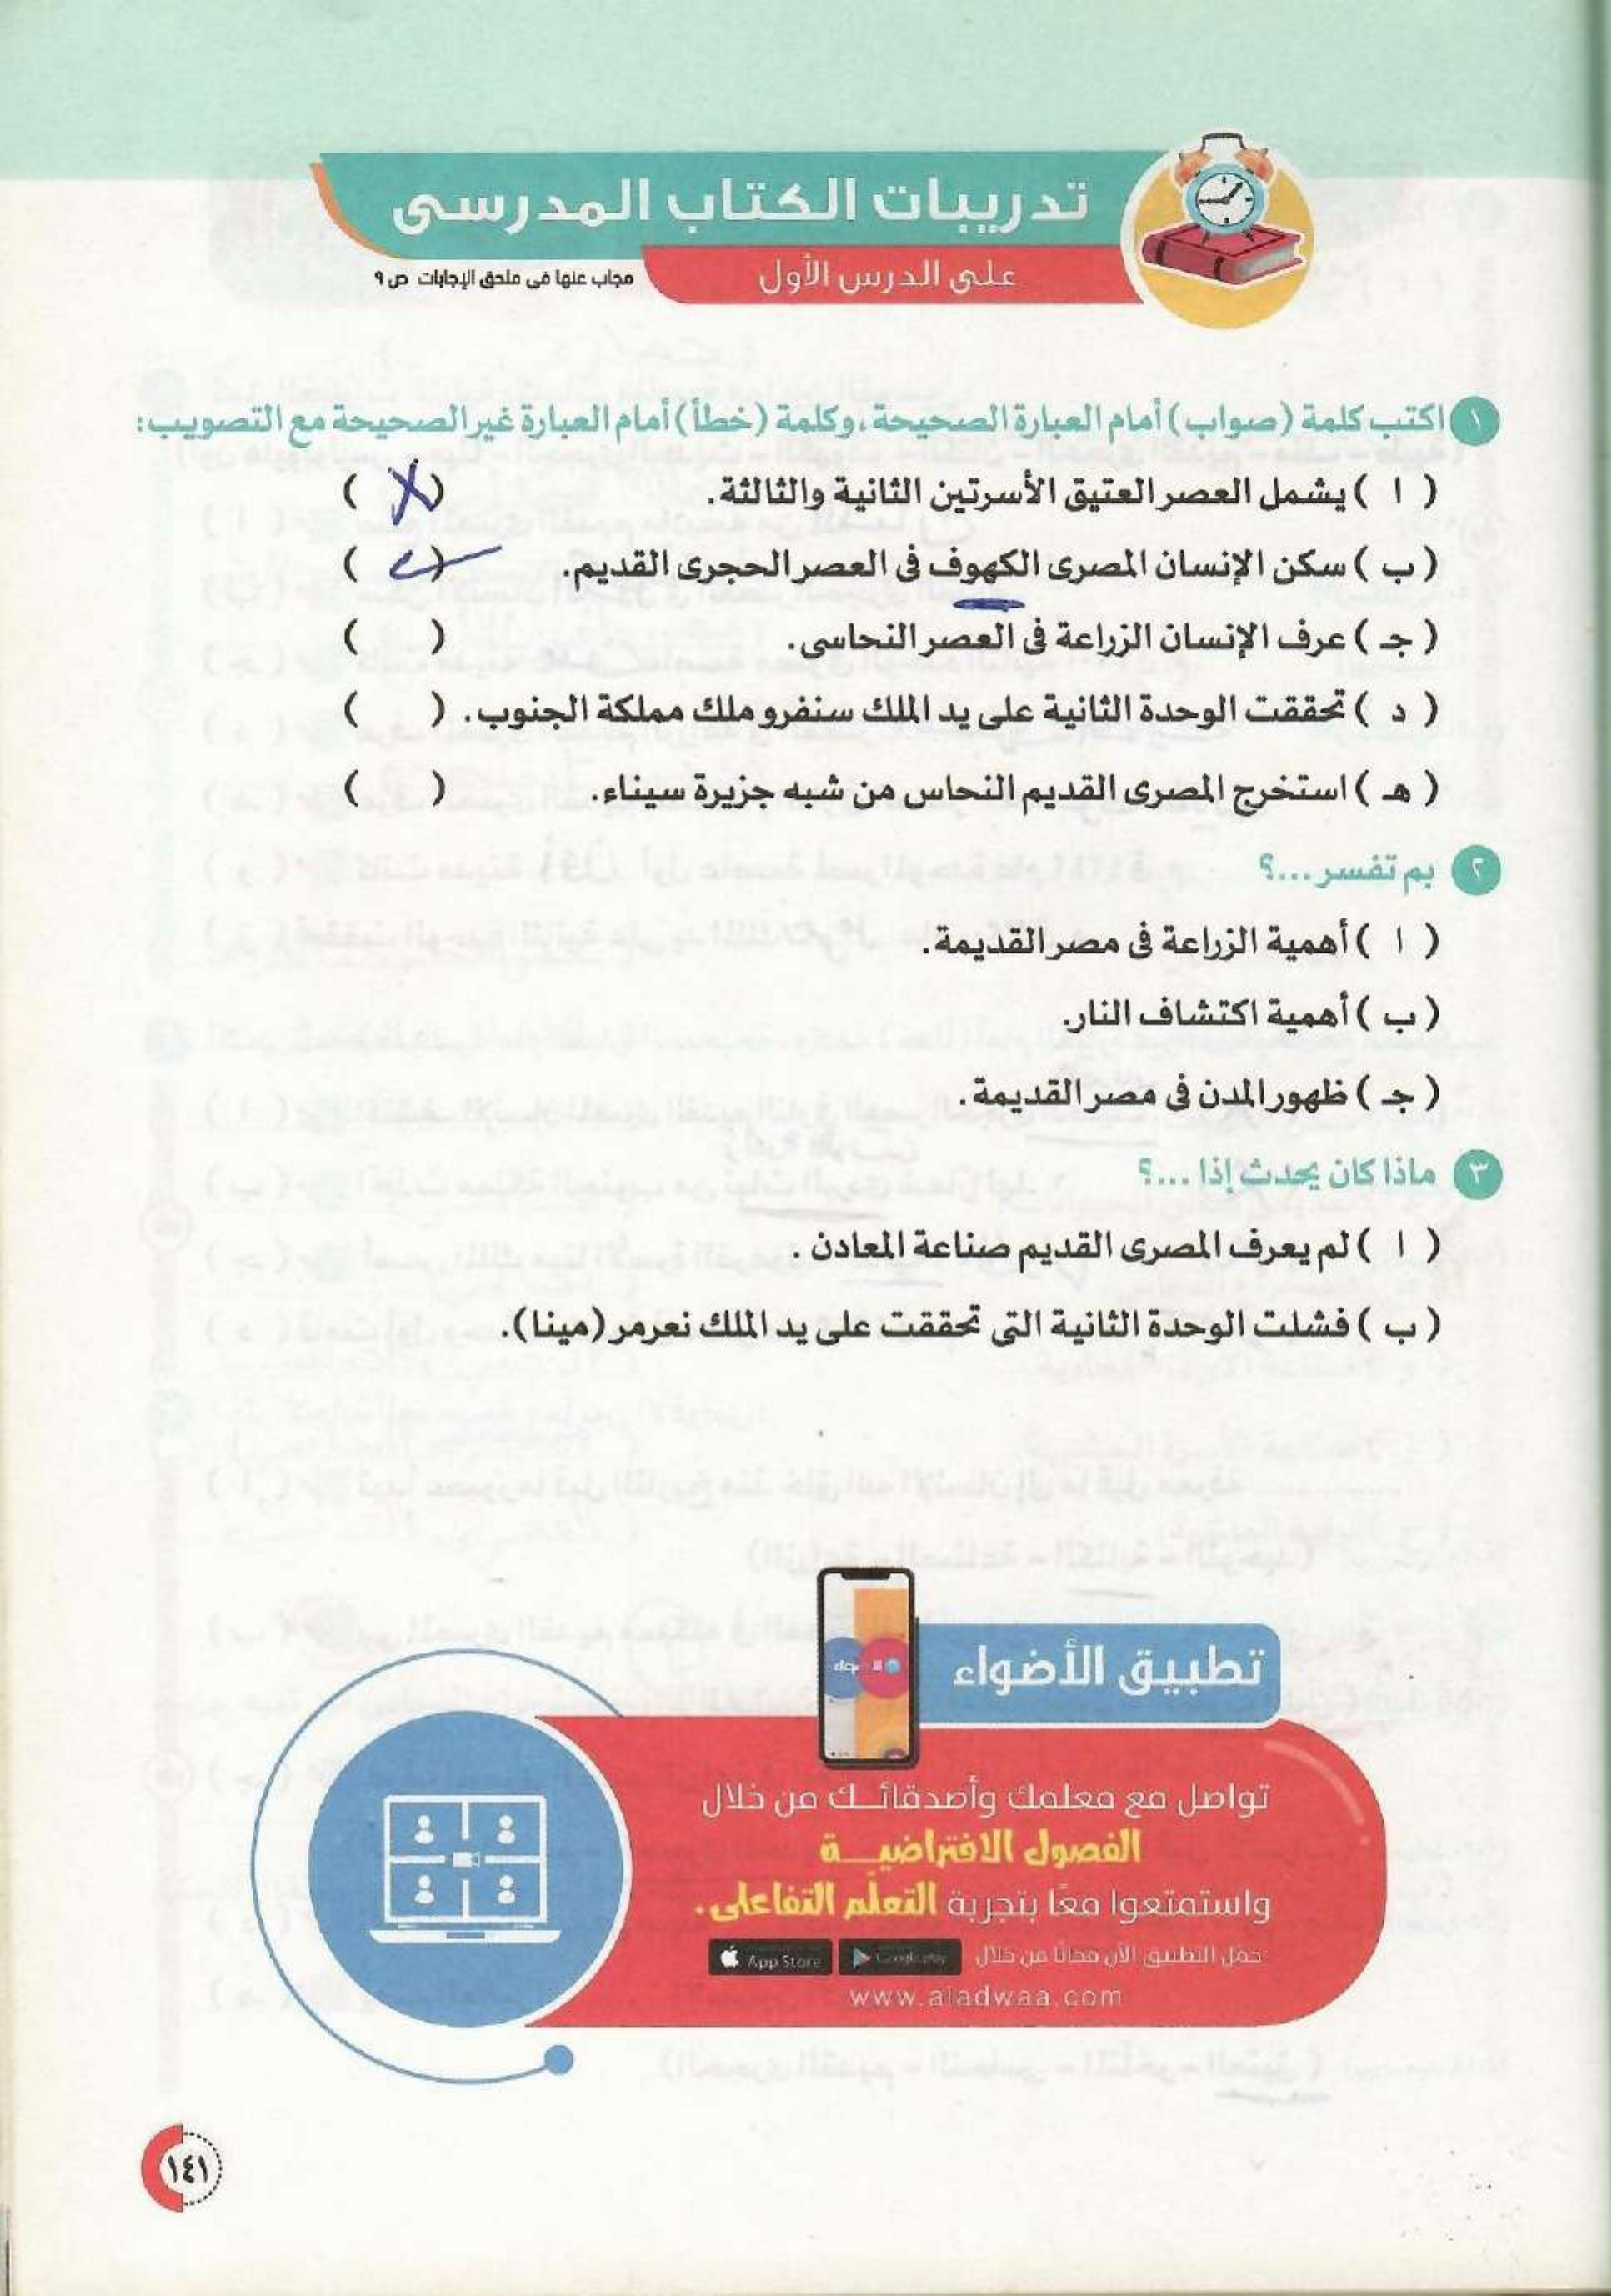 تدريبات الكتاب المدرسى
على الدرس الأول
مجاب عنها فى ملحق الإجابات ص ٩
١ اكتب كلمة (صواب) أمام العبارة الصحيحة، وكلمة (خطأ) أمام العبارة غير الصحيحة مع التصويب:
( ا ) يشمل العصر العتيق الأسرتين الثانية والثالثة. ( X )
( ب ) سكن الإنسان المصرى الكهوف فى العصر الحجرى القديم. ( ✓ )
( جـ ) عرف الإنسان الزراعة فى العصر النحاسى. ( )
( د ) تحققت الوحدة الثانية على يد الملك سنفرو ملك مملكة الجنوب. ( )
( هـ ) استخرج المصرى القديم النحاس من شبه جزيرة سيناء. ( )
٢ بم تفسر ...؟
( ا ) أهمية الزراعة فى مصر القديمة.
( ب ) أهمية اكتشاف النار.
( جـ ) ظهور المدن فى مصر القديمة.
٣ ماذا كان يحدث إذا ...؟
( ا ) لم يعرف المصرى القديم صناعة المعادن .
( ب ) فشلت الوحدة الثانية التى تحققت على يد الملك نعرمر (مينا).
تطبيق الأضواء
تواصل مع معلمك وأصدقائك من خلال
الفصول الافتراضية
واستمتعوا معًا بتجربة التعلّم التفاعلى.
حمل التطبيق الآن مجانًا من خلال Google play App Store
www.aladwaa.com
١٤١